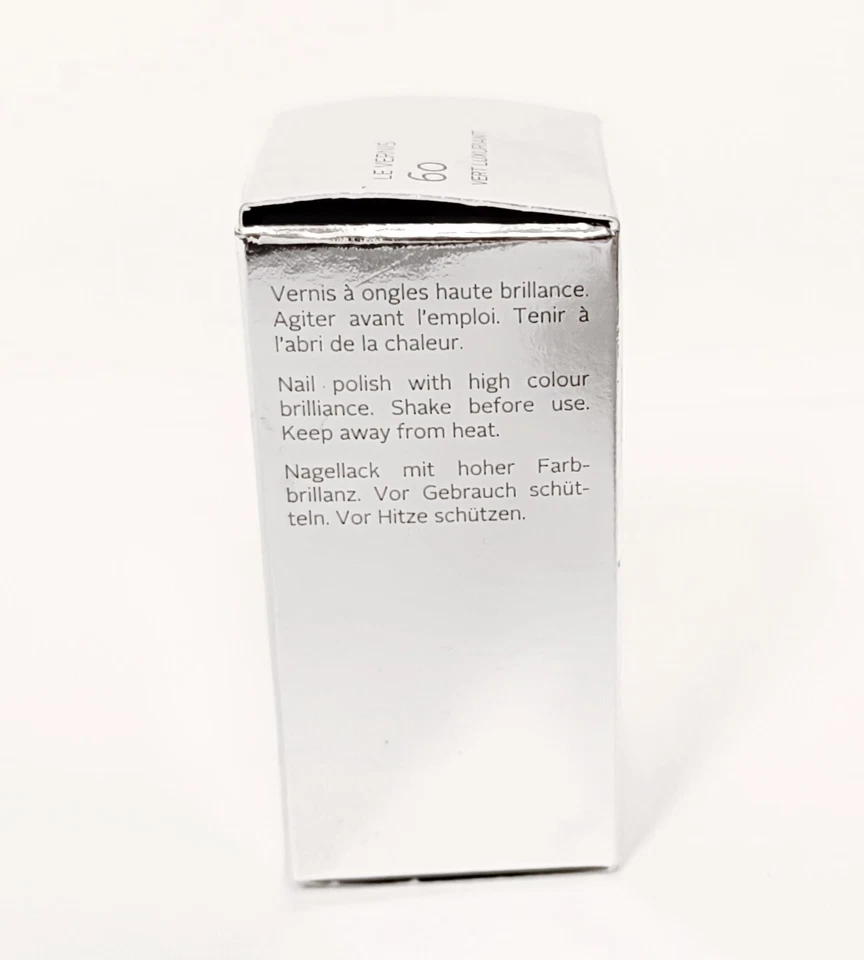 LE VERNIS
60
VERT LUXURIANT
Vernis à ongles haute brillance.
Agiter avant l'emploi. Tenir à
l'abri de la chaleur.
Nail polish with high colour
brilliance. Shake before use.
Keep away from heat.
Nagellack mit hoher Farb-
brillanz. Vor Gebrauch schüt-
teln. Vor Hitze schützen.